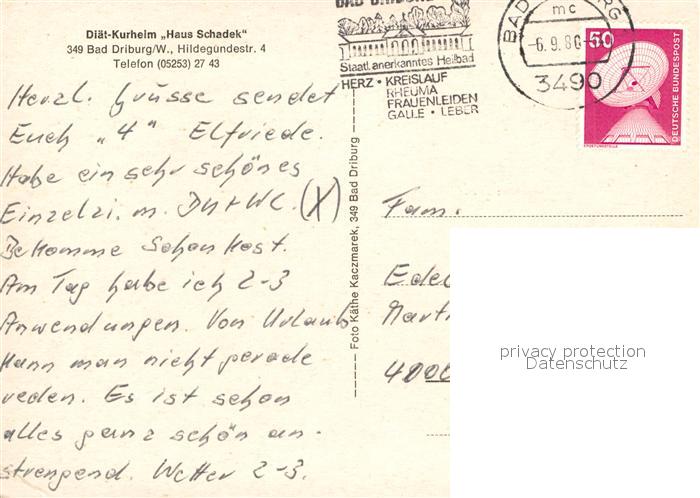 Diät-Kurheim „Haus Schadek"
349 Bad Driburg/W., Hildegundestr. 4
Telefon (05253) 27 43
Herzl. Grüsse sendet
Euch „4" Elfriede.
Habe ein sehr schönes
Einzelzi. m. DU+WC. (X)
Bekomme Schonkost.
Am Tag habe ich 2-3
Anwendungen. Von Urlaub
kann man nicht gerade
reden. Es ist schon
alles ganz schön an-
strengend. Wetter 2-3.
Foto Käthe Kaczmarek, 349 Bad Driburg
BAD DRIBURG
Staatl. anerkanntes Heilbad
HERZ · KREISLAUF
RHEUMA
FRAUENLEIDEN
GALLE · LEBER
mc
-6.9.80
3490
50
DEUTSCHE BUNDESPOST
Fam.
privacy protection
Datenschutz